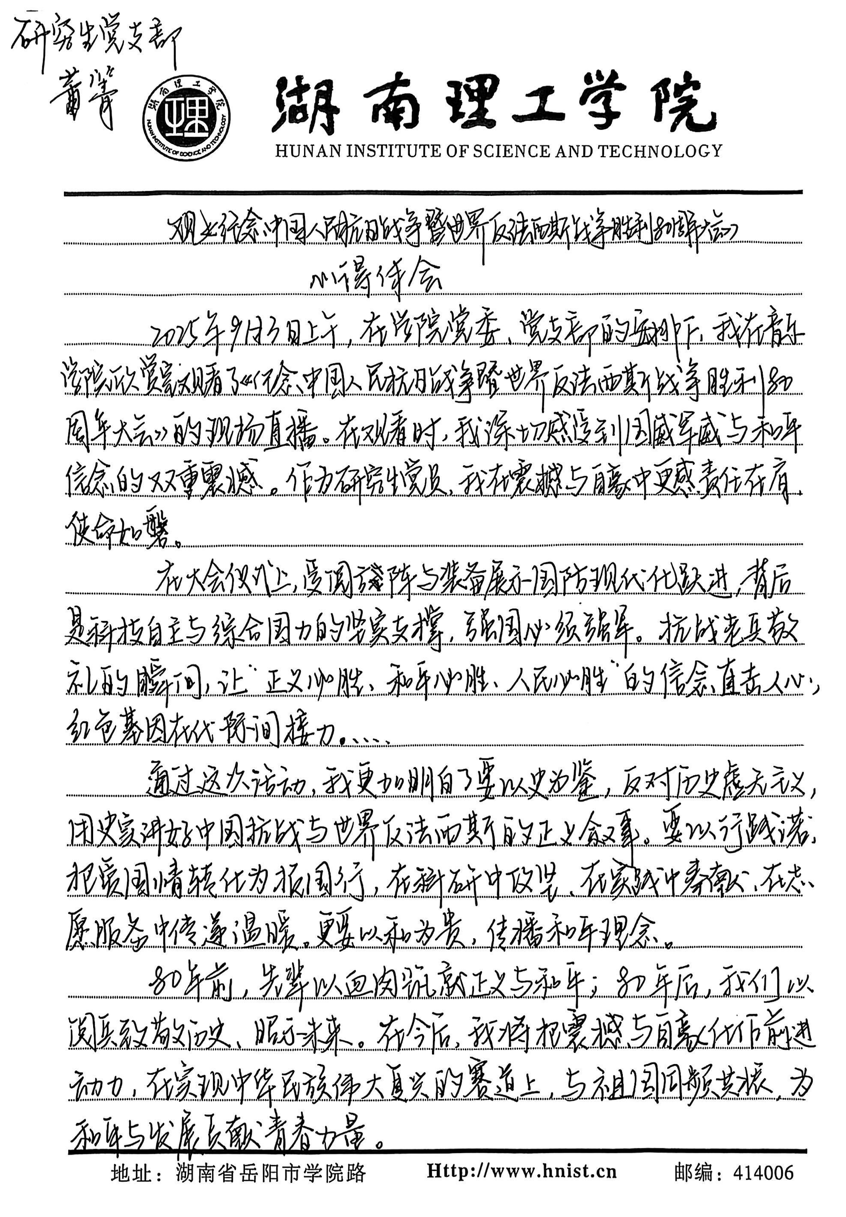 研究生党支部
董箐
湖南理工学院
HUNAN INSTITUTE OF SCIENCE AND TECHNOLOGY
湖南理工学院
HUNAN INSTITUTE OF SCIENCE AND TECHNOLOGY
观《纪念中国人民抗日战争暨世界反法西斯战争胜利80周年大会》
心得体会
2025年9月3日上午,在学院党委、党支部的安排下,我在音乐
学院欣赏室观看了《纪念中国人民抗日战争暨世界反法西斯战争胜利80
周年大会》的现场直播。在观看时,我深切感受到国威军威与和平
信念的双重震撼。作为研究生党员,我在震撼与自豪中更感责任在肩,
使命如磐。
在大会仪式上,受阅方阵与装备展示国防现代化跃进,背后
是科技自主与综合国力的坚实支撑,强国必须强军。抗战老兵敬
礼的瞬间,让“正义必胜、和平必胜、人民必胜”的信念直击人心,
红色基因在代际间接力。.....
通过这次活动,我更加明白了要以史为鉴,反对历史虚无主义,
用史实讲好中国抗战与世界反法西斯的正义叙事。要以行践诺,
把爱国情转化为报国行,在科研中攻坚、在实践中奉献、在志
愿服务中传递温暖。更要以和为贵,传播和平理念。
80年前,先辈以血肉筑就正义与和平;80年后,我们以
阅兵致敬历史、昭示未来。在今后,我将把震撼与自豪化作前进
动力,在实现中华民族伟大复兴的赛道上,与祖国同频共振,为
和平与发展贡献青春力量。
地址:湖南省岳阳市学院路 Http://www.hnist.cn 邮编:414006